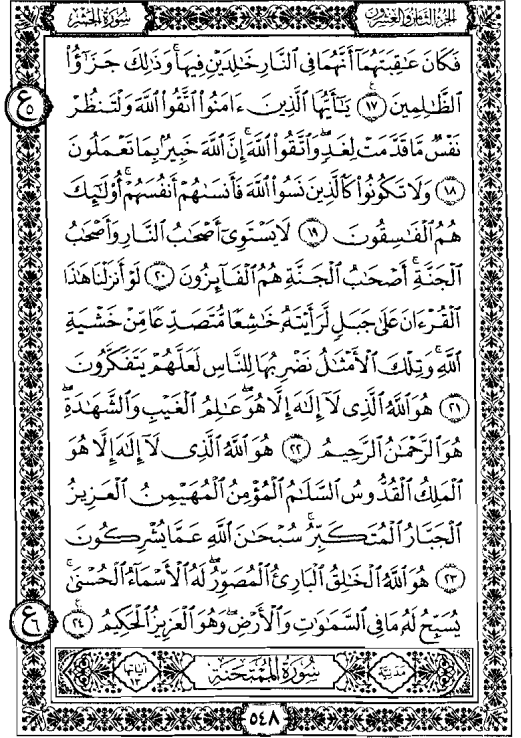 الجزء الثامن والعشرون سورة الحشر
فَكَانَ عَٰقِبَتَهُمَآ أَنَّهُمَا فِي ٱلنَّارِ خَٰلِدَيْنِ فِيهَاۚ وَذَٰلِكَ جَزَٰٓؤُاْ
ٱلظَّٰلِمِينَ ١٧ يَٰٓأَيُّهَا ٱلَّذِينَ ءَامَنُواْ ٱتَّقُواْ ٱللَّهَ وَلْتَنظُرْ
نَفْسٌ مَّا قَدَّمَتْ لِغَدٍۖ وَٱتَّقُواْ ٱللَّهَۚ إِنَّ ٱللَّهَ خَبِيرٌۢ بِمَا تَعْمَلُونَ
١٨ وَلَا تَكُونُواْ كَٱلَّذِينَ نَسُواْ ٱللَّهَ فَأَنسَىٰهُمْ أَنفُسَهُمْۚ أُوْلَٰٓئِكَ
هُمُ ٱلْفَٰسِقُونَ ١٩ لَا يَسْتَوِيٓ أَصْحَٰبُ ٱلنَّارِ وَأَصْحَٰبُ
ٱلْجَنَّةِۚ أَصْحَٰبُ ٱلْجَنَّةِ هُمُ ٱلْفَآئِزُونَ ٢٠ لَوْ أَنزَلْنَا هَٰذَا
ٱلْقُرْءَانَ عَلَىٰ جَبَلٍ لَّرَأَيْتَهُۥ خَٰشِعًا مُّتَصَدِّعًا مِّنْ خَشْيَةِ
ٱللَّهِۚ وَتِلْكَ ٱلْأَمْثَٰلُ نَضْرِبُهَا لِلنَّاسِ لَعَلَّهُمْ يَتَفَكَّرُونَ
٢١ هُوَ ٱللَّهُ ٱلَّذِي لَآ إِلَٰهَ إِلَّا هُوَۖ عَٰلِمُ ٱلْغَيْبِ وَٱلشَّهَٰدَةِۖ
هُوَ ٱلرَّحْمَٰنُ ٱلرَّحِيمُ ٢٢ هُوَ ٱللَّهُ ٱلَّذِي لَآ إِلَٰهَ إِلَّا هُوَ
ٱلْمَلِكُ ٱلْقُدُّوسُ ٱلسَّلَٰمُ ٱلْمُؤْمِنُ ٱلْمُهَيْمِنُ ٱلْعَزِيزُ
ٱلْجَبَّارُ ٱلْمُتَكَبِّرُۚ سُبْحَٰنَ ٱللَّهِ عَمَّا يُشْرِكُونَ
٢٣ هُوَ ٱللَّهُ ٱلْخَٰلِقُ ٱلْبَارِئُ ٱلْمُصَوِّرُۖ لَهُ ٱلْأَسْمَآءُ ٱلْحُسْنَىٰۚ
يُسَبِّحُ لَهُۥ مَا فِي ٱلسَّمَٰوَٰتِ وَٱلْأَرْضِۖ وَهُوَ ٱلْعَزِيزُ ٱلْحَكِيمُ ٢٤
مدنية سورة الممتحنة آياتها ١٣
٥٤٨
ع ٥
ع ٦